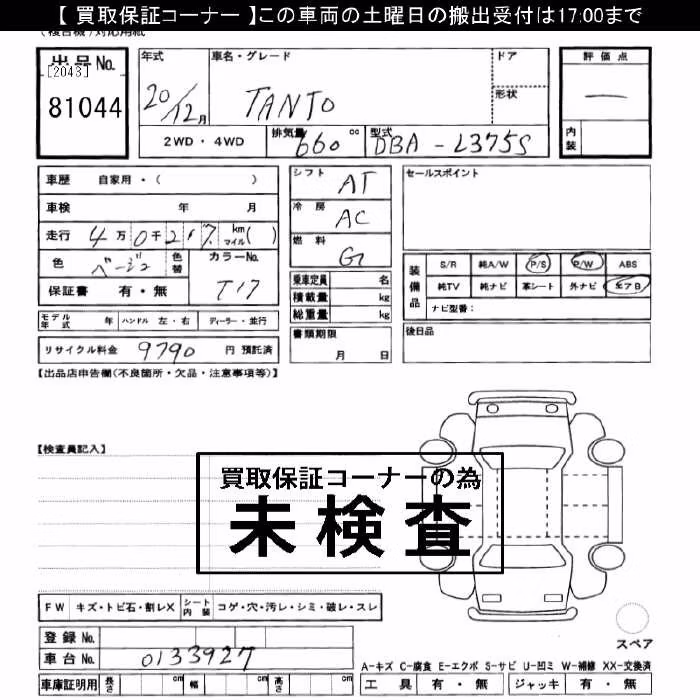 【 買取保証コーナー 】この車両の土曜日の搬出受付は17:00まで
出品No.
[2043]
81044
年式
20/12月
車名・グレード
TANTO
ドア
形状
評価点
内装
2WD・4WD
排気量 660 cc
型式 DBA-L375S
車歴 自家用・( )
車検 年 月
走行 4万0千2 7 km マイル( )
色 ベージュ 色替
カラーNo. T17
保証書 有・無
シフト AT
冷房 AC
燃料 G
乗車定員 名
積載量 kg
総重量 kg
書類期限 月 日
セールスポイント
装備品
S/R 純A/W P/S P/W ABS
純TV 純ナビ 革シート 外ナビ エアB
ナビ型番:
後日品
モデル年式 年 ハンドル 左・右 ディーラー・並行
リサイクル料金 9790 円 預託済
【出品店申告欄(不良箇所・欠品・注意事項等)】
【検査員記入】
買取保証コーナーの為
未検査
FW キズ・トビ石・割レX シート内装 コゲ・穴・汚レ・シミ・破レ・スレ
登録No.
車台No. 0133927
スペア
A-キズ C-腐食 E-エクボ S-サビ U-凹ミ W-補修 XX-交換済
車庫証明用 長さ cm 幅 cm 高さ cm
工具 有・無 ジャッキ 有・無